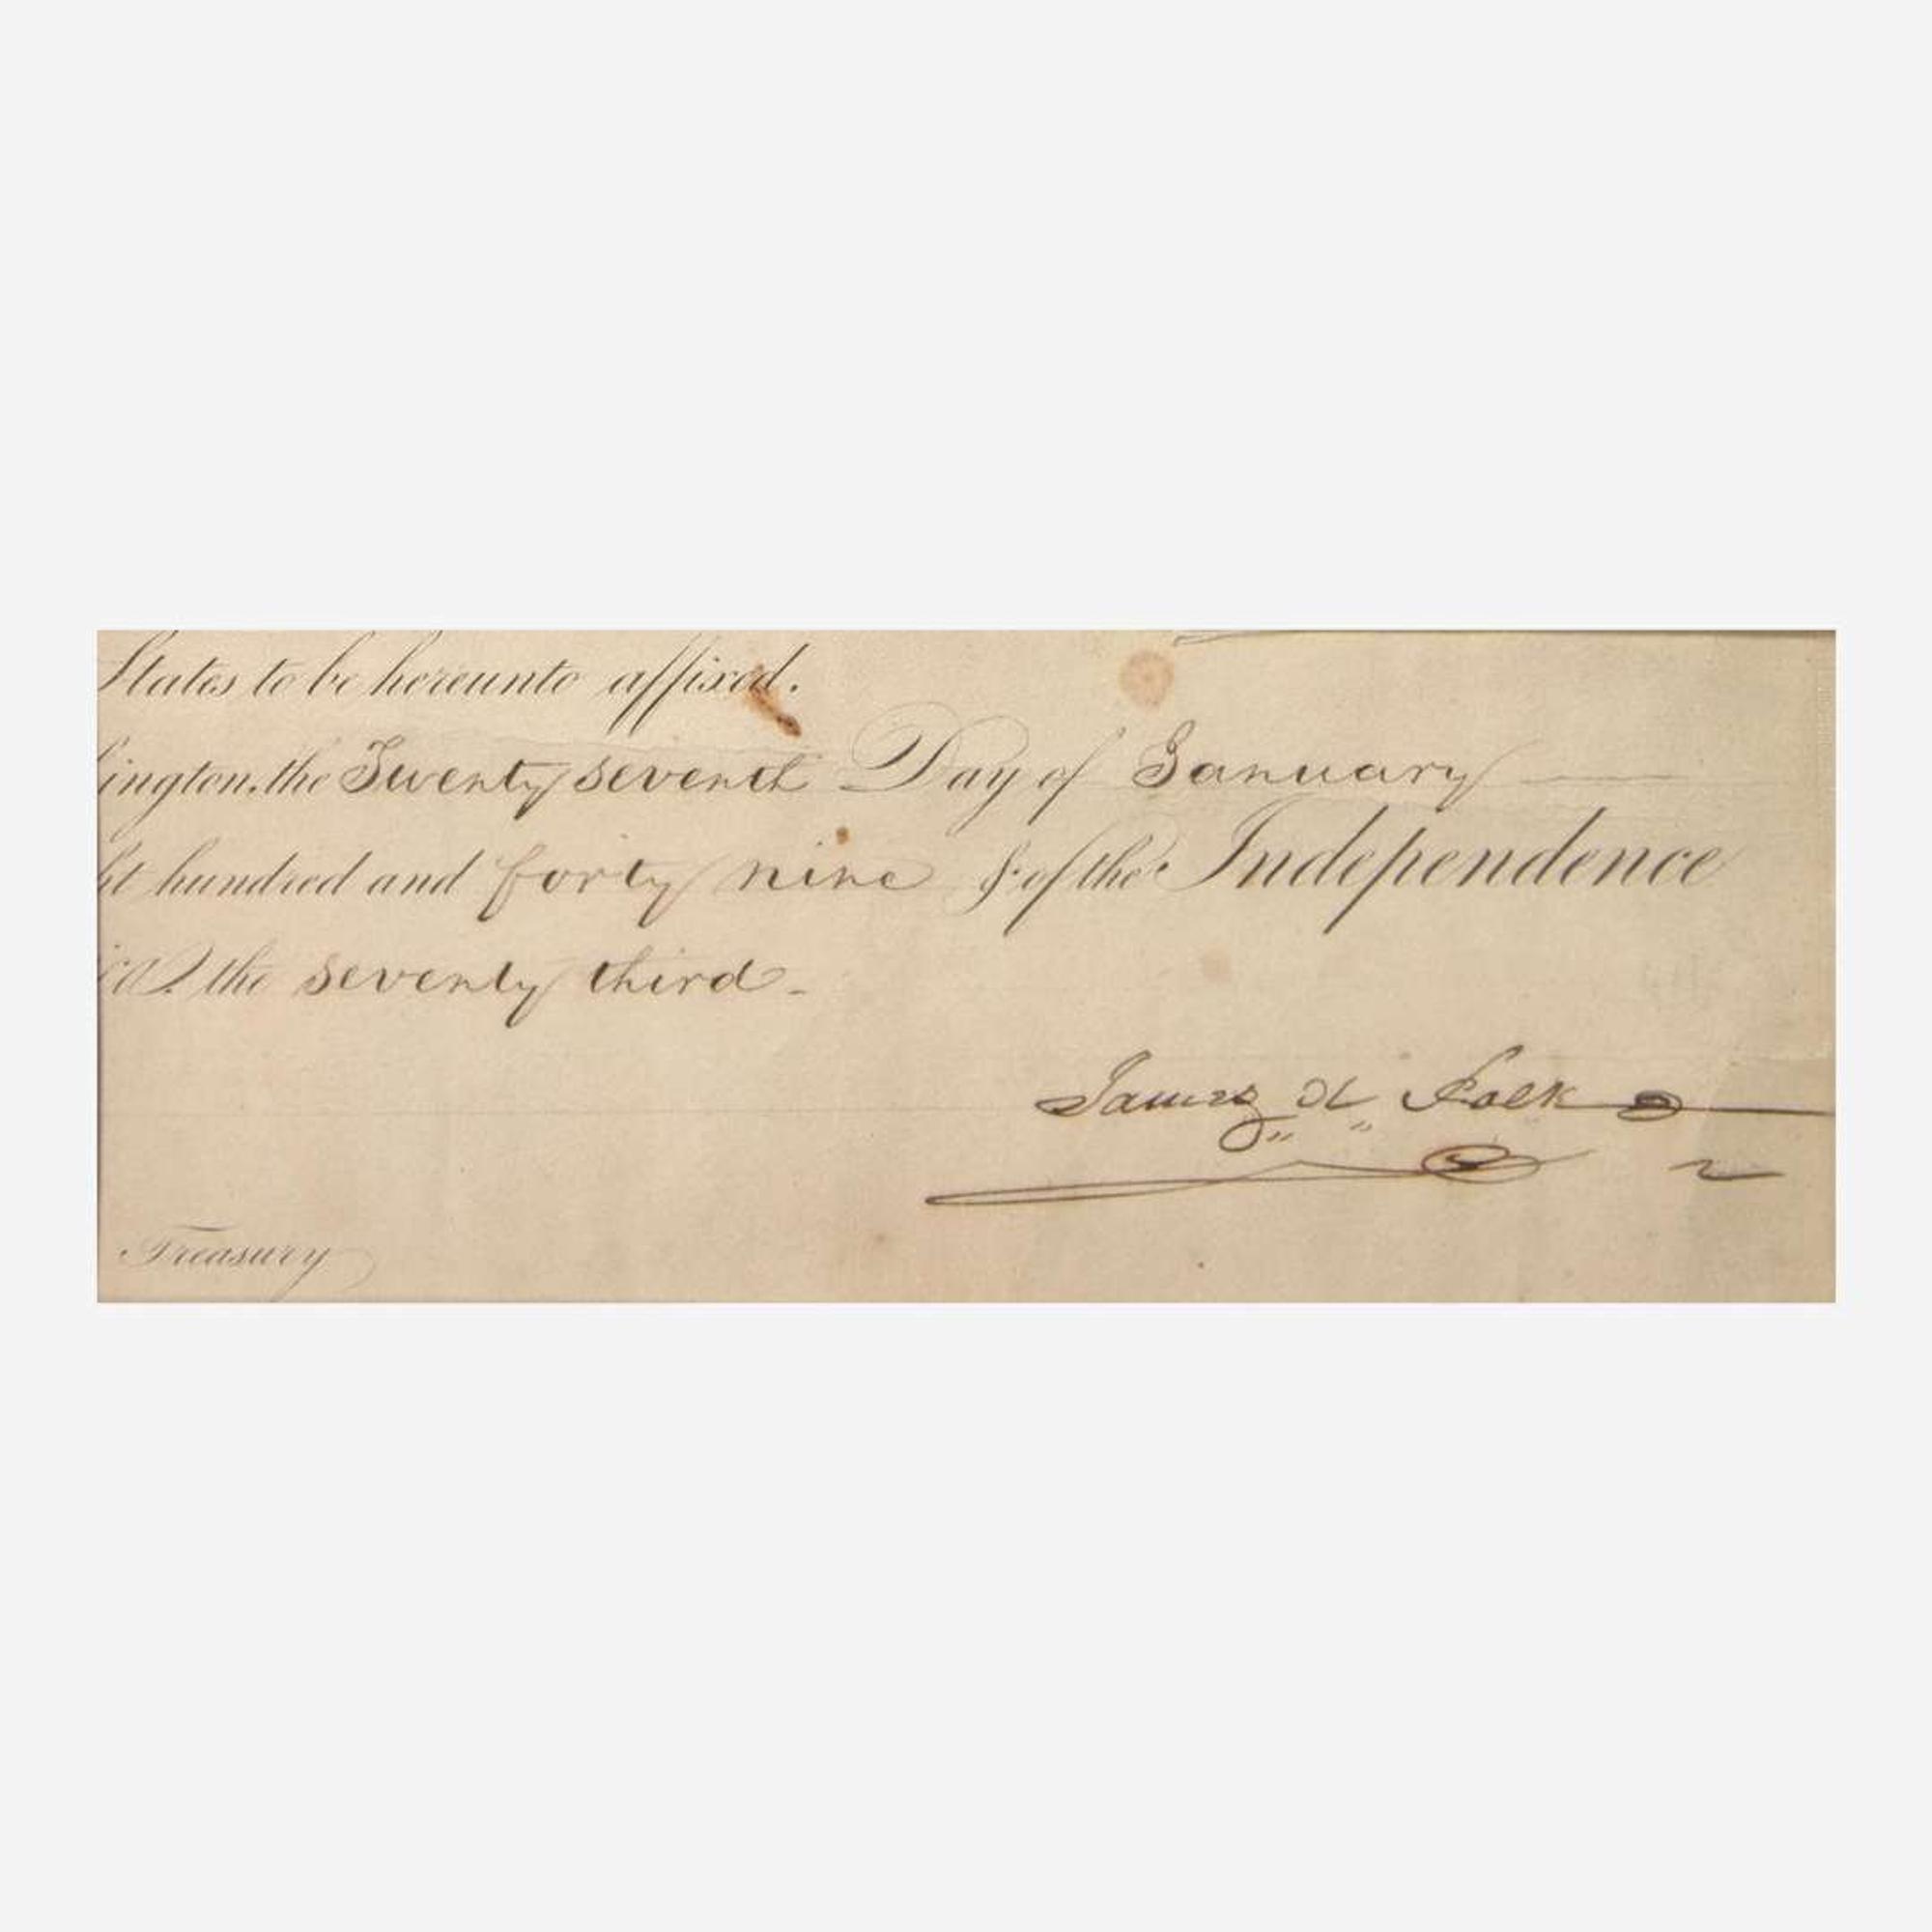 States to be hereunto affixed.
ington, the Twenty seventh Day of January
ht hundred and forty nine & of the Independence
ica, the seventy third.
James K Polk
Treasury